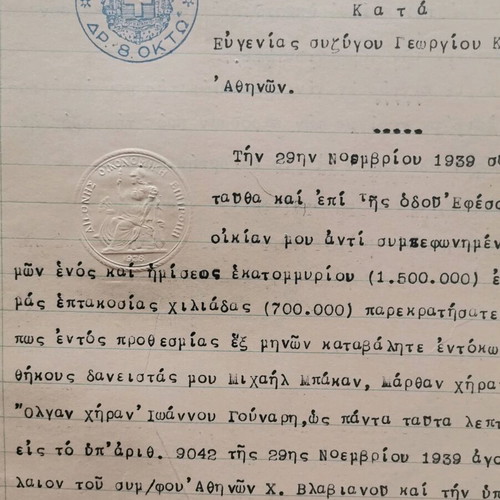 ΔΡ. 8. ΟΚΤΩ
Κατά
Εὐγενίας συζύγου Γεωργίου Κ
Ἀθηνῶν.
Τήν 29ην Νοεμβρίου 1939 συ
ταῦθα καί ἐπί τῆς ὁδοῦ Ἐφέσο
οἰκίαν μου ἀντί συμπεφωνημέν
μῶν ἑνός καί ἡμίσεως ἑκατομμυρίου (1.500.000) ἐ
μάς ἑπτακοσίας χιλιάδας (700.000) παρεκρατήσατε
πως ἐντός προθεσμίας ἕξ μηνῶν καταβάλητε ἐντόκω
θήκους δανειστάς μου Μιχαήλ Μπάκαν, Μάρθαν χήρα
Ὄλγαν χήραν Ἰωάννου Γούναρη, ὡς πάντα ταῦτα λεπτ
εἰς τό ὑπ' ἀριθ. 9042 τῆς 29ης Νοεμβρίου 1939 ἀγο
λαιον τοῦ συμ/φου Ἀθηνῶν Χ. Βλαβιανοῦ καί τήν ὑπ